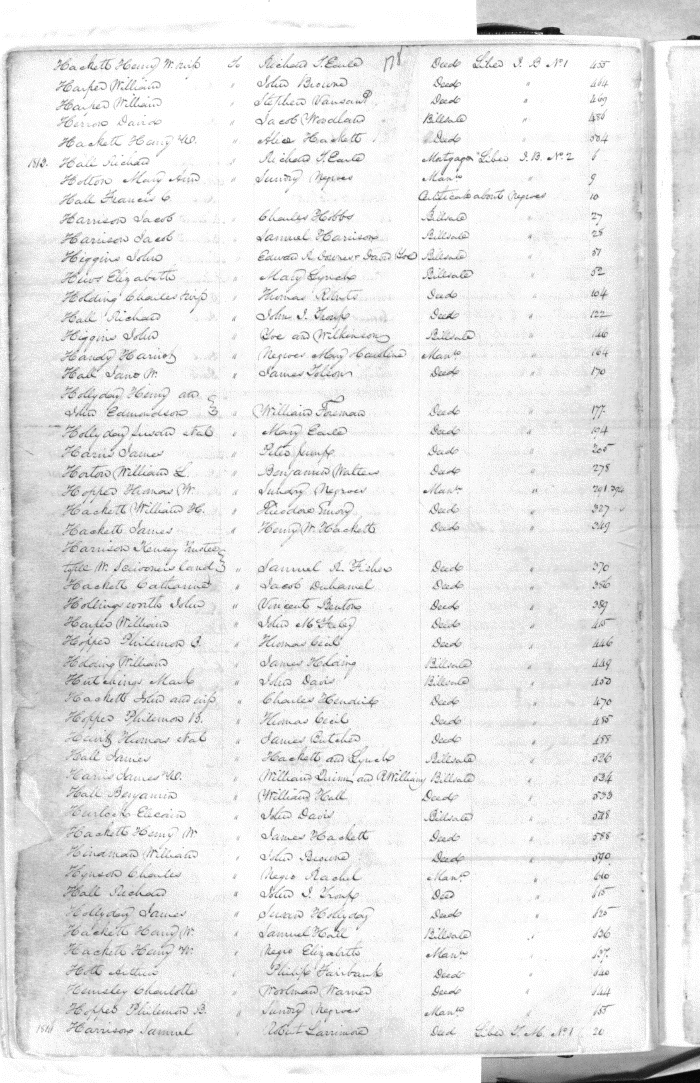 Hackett Henry W. & wife To Richard T. Earle 178 Deed Liber J. B. No 1 455
Harper William " John Browne Deed " 464
Harper William " Stephen Vansant Deed " 469
David " Jacob Woodland Billsale " 486
Hackett Henry W. " Alice Hackett Deed " 504
1812. Hall Richard " Richard T. Earle Mortgage Liber J. B. No. 2
Holton Mary Ann " Sundry Negroes Manu " 9
Hall Francis C. Certificate about Negroes 10
Harrison Jacob " Charles Hobbs Billsale " 27
Harrison Jacob " Samuel Harrison Billsale " 28
Higgins John " Edward & David Billsale " 51
Elizabeth " Mary Lynch Billsale " 52
Holding Charles & wife " Thomas Roberts Deed " 104
Hall Richard " John I. Troup Deed " 122
Higgins John " Yoe and Wilkinson Billsale " 146
Handy Harriot " Negroes Mary Caroline Manu " 164
Hall Jane W. " James Tolson Deed " 170
Hollyday Henry and
John Edmondson " William Foreman Deed " 177
Hollyday " Mary Earle Deed " 194
Harris James " Peter Jump Deed " 205
Horton William L. " Benjamin Walters Deed " 278
Hopper Thomas W. " Sundry Negroes Manu " 291
Hackett William H. " Theodore Emory Deed " 327
Hackett James " Henry W. Hackett Deed " 349
Harrison Kensey Trustee
of W. land " Samuel A. Fisher Deed " 370
Hackett Catharine " Jacob Duhamel Deed " 386
Hollingsworth John " Vincent Benton Deed " 389
Harper William " John Deed " 415
Hopper Philemon B. " Thomas Cecil Deed " 446
Holding William " James Holding Billsale " 449
Hutchings Mark " John Davis Billsale " 450
Hackett John and wife " Charles Hendrix Deed " 470
Hopper Philemon B. " Thomas Cecil Deed " 485
Thomas " James Butcher Deed " 488
Hall James " Hackett and Lynch Billsale " 526
Harris James W. " William Quinn and R William Billsale " 534
Hall Benjamin " William Hall Deed " 533
Hurlock " John Davis Billsale " 548
Hackett Henry W. " James Hackett Deed " 588
Hindman William " John Browne Deed " 590
Hynson Charles " Negro Rachel Manu " 610
Hall Richard " John I. Troup Deed " 615
Hollyday James " Susan Hollyday Deed " 625
Hackett Henry W. " Samuel Hall Billsale " 636
Hackett Henry W. " Negro Elizabeth Manu " 637
Holt Arthur " Philip Fairbank Deed " 640
Hemsley Charlotte " Woolman Warner Deed " 644
Hopper Philemon B. " Sundry Negroes Manu " 655
Harrison Samuel " Larrimore Deed Liber T. M. No. 1 20